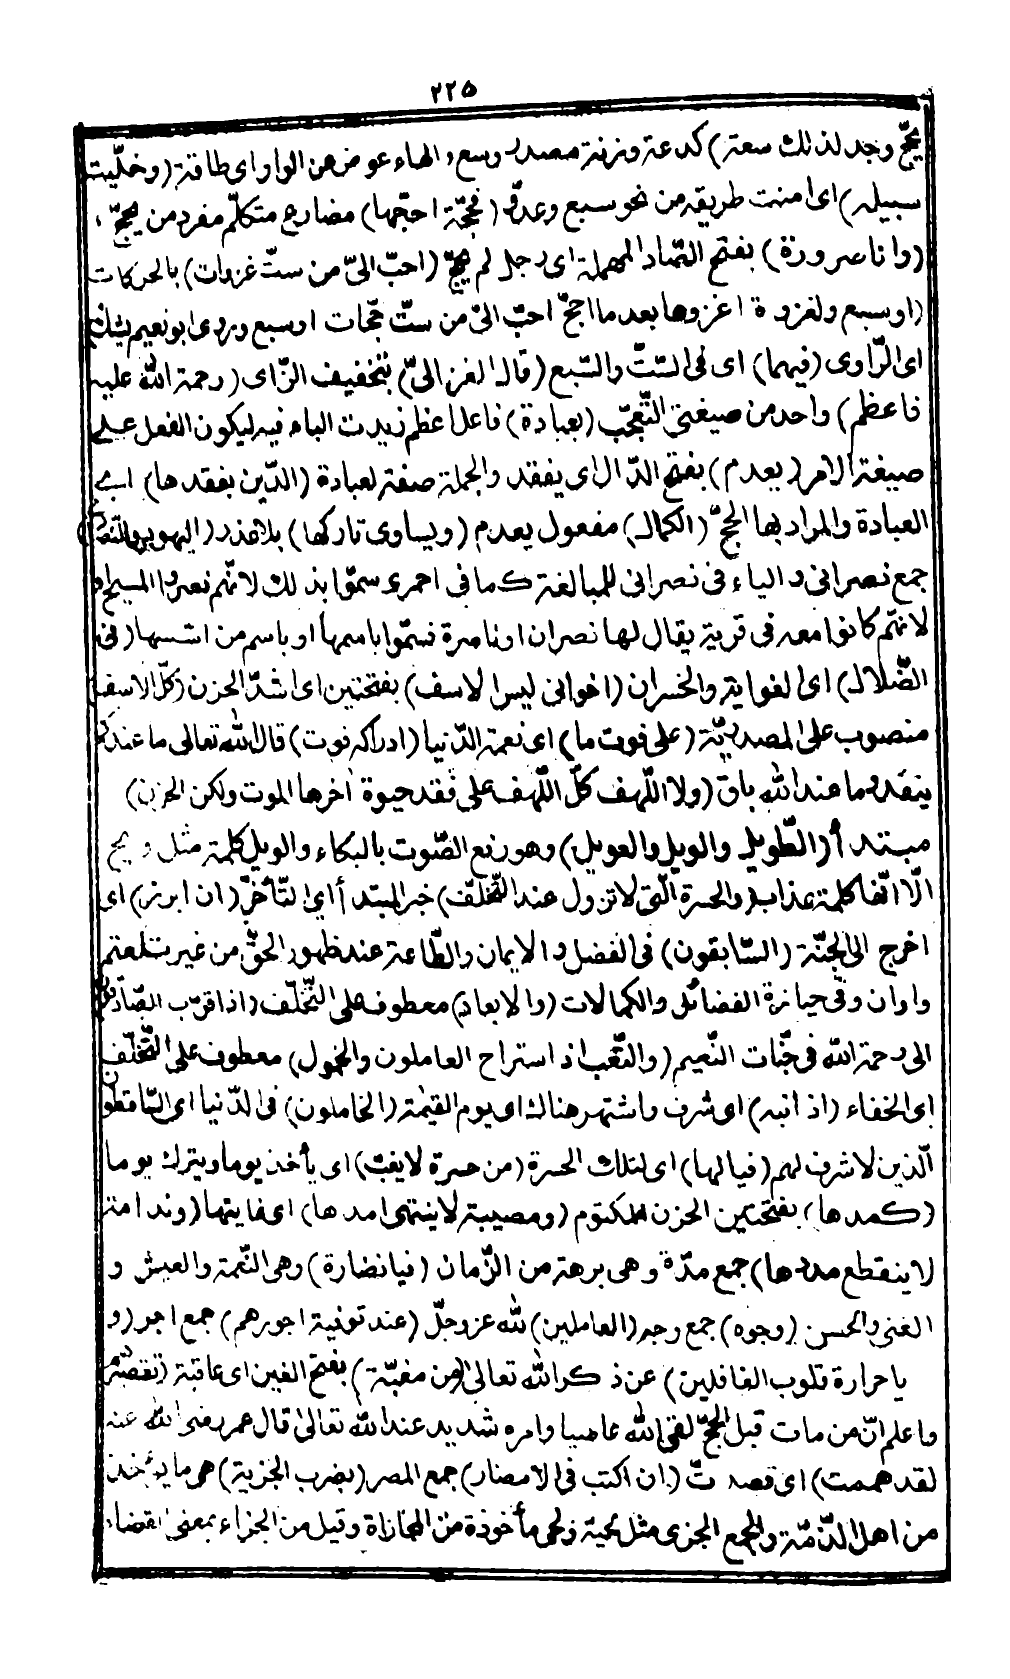 ٢٢٥
يحجّ وجد لذلك سعة) كدعة وزنة مصدر وسع، الهاء عوض عن الواو اى طاقة (وخلّيت
سبيله) اى امنت طريقه من نحو سبع وعدوّ (فحجّة احجّها) مضارع متكلّم مفرد من يحجّ،
(وانا صرورة) بفتح الصّاد المهملة اى رجل لم يحجّ (احبّ الىّ من ستّ غزوات) بالحركات
(او سبع ولغزوة اغزوها بعد ما احجّ احبّ الىّ من ستّ حجّات او سبع وروى ابو نعيم يشكّ
اى الرّاوى (فيهما) اى فى السّتّ والسّبع (قال الغزالىّ) بتخفيف الزّاى (رحمة الله عليه
فاعظم) واحد من صيغتى التّعجّب (بعبادة) فاعل اعظم زيدت الباء فيه ليكون الفعل على
صيغة الامر (يعدم) بفتح الدّال اى يفقد والجملة صفة لعبادة (الدّين بفقدها) اى
العبادة والمراد بها الحجّ (الكمال) مفعول يعدم (ويساوى تاركها) بلا عذر (اليهود والنّصارى)
جمع نصرانى والياء فى نصرانى للمبالغة كما فى احمرى سمّوا بذلك لانّهم نصروا المسيح او
لانّهم كانوا معه فى قرية يقال لها نصران او ناصرة فسمّوا باسمها او باسم من اسّسها (فى
الضّلال) اى الغواية والخسران (اخوانى ليس الاسف) بفتحتين اى اشدّ الحزن (كلّ الاسف)
منصوب على المصدريّة (على فوت ما) اى نعمة الدّنيا (ادراكه فوت) قال الله تعالى ما عندكم
ينفد وما عند الله باق (ولا اللّهف كلّ اللّهف على فقد حيوة اخرها الموت ولكن الحزن)
مبتدأ (الطّويل والويل والعويل) وهو رفع الصّوت بالبكاء والويل كلمة مثل ويح
الّا انّها كلمة عذاب (والحسرة الّتى لا تزول عند التّخلّف) خبر المبتدأ اى التّأخّر (ان ابرز) اى
اخرج الى الجنّة (السّابقون) فى الفضل والايمان والطّاعة عند ظهور الحقّ من غير تلعثم
وا وان وفى حيازة الفضائل والكمالات (والابعاد) معطوف على التّخلّف (اذا قرّب الصّادقون)
الى رحمة الله فى جنّات النّعيم (والتّعب اذ استراح العاملون والخمول) معطوف على التّخلّف
اى الخفاء (اذ انبه) اى شرف واشتهر هنالك اى يوم القيمة (الخاملون) فى الدّنيا اى السّاقطون
الّذين لا شرف لهم (فيالها) اى لتلك الحسرة (من حسرة لا يغبّ) اى يأخذ يوما ويترك يوما
(كمدها) بفتحتين الحزن المكتوم (ومصيبة لا ينتهى امدها) اى غايتها (وندامة
لا ينقطع مددها) جمع مدّة وهى برهة من الزّمان (فيا نضارة) وهى النّعمة والعيش و
الغنى والحسن (وجوه) جمع وجه (العاملين) لله عزّ وجلّ (عند توفية اجورهم) جمع اجر (و
يا حرارة قلوب الغافلين) عن ذكر الله تعالى (من مغبّة) بفتح الغين اى عاقبة (تقصيرهم
واعلم انّ من مات قبل الحجّ لقى الله عاصيا وامره شديد عند الله تعالى قال عمر رضى الله عنه
لقد هممت) اى قصدتّ (ان اكتب فى الامصار) جمع المصر (بضرب الجزية) هى ما يؤخذ
من اهل الذّمّة والجمع الجزى مثل لحية ولحى مأخوذة من المجازاة وقيل من الجزاء بمعنى القضاء